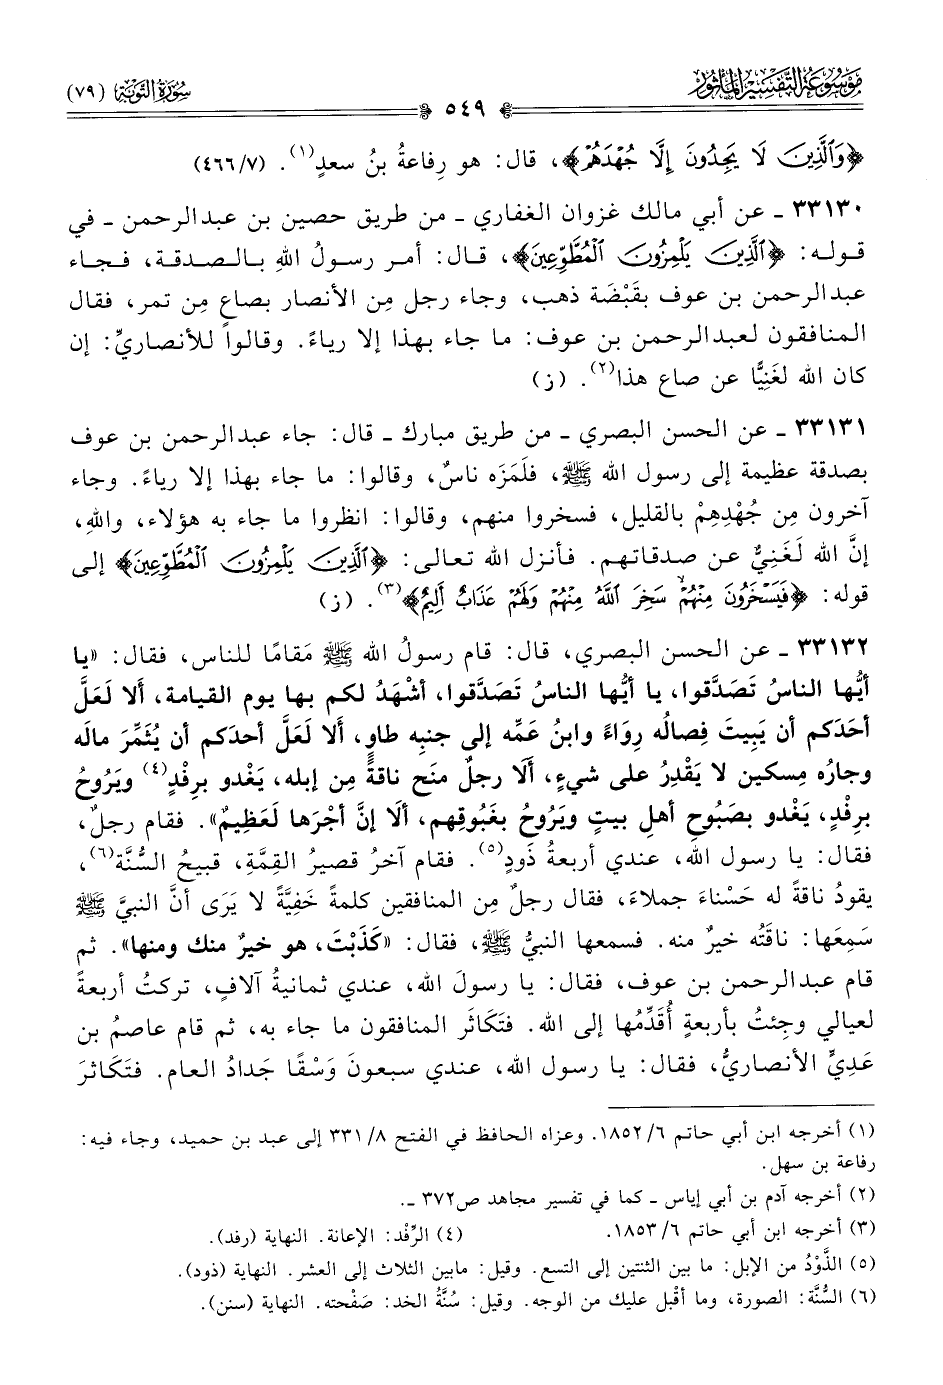 مَوْسُوعَةُ التَّفْسِيرِ المَأْثُور
سُورَةُ التَّوْبَةِ (٧٩)
٥٤٩
﴿وَالَّذِينَ لَا يَجِدُونَ إِلَّا جُهْدَهُمْ﴾، قال: هو رِفاعةُ بنُ سعدٍ(١). (٧/ ٤٦٦)
٣٣١٣٠ ـ عن أبي مالك غزوان الغفاري ـ من طريق حصين بن عبدالرحمن ـ في
قوله: ﴿الَّذِينَ يَلْمِزُونَ الْمُطَّوِّعِينَ﴾، قال: أمر رسولُ اللهِ بالصدقة، فجاء
عبدالرحمن بن عوف بقَبْضَة ذهب، وجاء رجل مِن الأنصار بصاع مِن تمر، فقال
المنافقون لعبدالرحمن بن عوف: ما جاء بهذا إلا رياءً. وقالوا للأنصاريِّ: إن
كان الله لغَنِيًّا عن صاع هذا(٢). (ز)
٣٣١٣١ ـ عن الحسن البصري ـ من طريق مبارك ـ قال: جاء عبدالرحمن بن عوف
بصدقة عظيمة إلى رسول الله ﷺ، فلَمَزَه ناسٌ، وقالوا: ما جاء بهذا إلا رياءً. وجاء
آخرون مِن جُهْدِهِمْ بالقليل، فسخروا منهم، وقالوا: انظروا ما جاء به هؤلاء، واللهِ،
إنَّ الله لَغَنِيٌّ عن صدقاتهم. فأنزل الله تعالى: ﴿الَّذِينَ يَلْمِزُونَ الْمُطَّوِّعِينَ﴾ إلى
قوله: ﴿فَيَسْخَرُونَ مِنْهُمْ سَخِرَ اللَّهُ مِنْهُمْ وَلَهُمْ عَذَابٌ أَلِيمٌ﴾(٣). (ز)
٣٣١٣٢ ـ عن الحسن البصري، قال: قام رسولُ الله ﷺ مَقامًا للناس، فقال: «يا
أيُّها الناسُ تَصَدَّقوا، يا أيُّها الناسُ تَصَدَّقوا، أشْهَدُ لكم بها يوم القيامة، ألا لَعَلَّ
أحَدَكم أن يَبِيتَ فِصالُه رِوَاءً وابنُ عَمِّه إلى جنبِه طاوٍ، ألا لعلَّ أحدكم أن يُثَمِّرَ مالَه
وجارُه مِسكين لا يَقْدِرُ على شيءٍ، ألَا رجلٌ منَح ناقةً مِن إبله، يَغْدو برِفْدٍ(٤) ويَرُوحُ
برِفْدٍ، يَغْدو بصَبُوح أهلِ بيتٍ ويَرُوحُ بغَبُوقِهم، ألَا إنَّ أجْرَها لَعَظِيمٌ». فقام رجلٌ،
فقال: يا رسول الله، عندي أربعةُ ذَودٍ(٥). فقام آخرُ قصيرُ القِمَّةِ، قبيحُ السُّنَّة(٦)،
يقودُ ناقةً له حَسْناءَ جملاءَ، فقال رجلٌ مِن المنافقين كلمةً خَفِيَّةً لا يَرَى أنَّ النبيَّ ﷺ
سَمِعَها: ناقَتُه خيرٌ منه. فسمعها النبيُّ ﷺ، فقال: «كَذَبْتَ، هو خيرٌ منك ومنها». ثم
قام عبدالرحمن بن عوف، فقال: يا رسولَ الله، عندي ثمانيةُ آلافٍ، تركتُ أربعةً
لعيالي وجِئتُ بأربعةٍ أُقَدِّمُها إلى الله. فتَكَاثَر المنافقون ما جاء به، ثم قام عاصمُ بن
عَدِيٍّ الأنصاريُّ، فقال: يا رسول الله، عندي سبعونَ وَسْقًا جَدادُ العام. فتَكاثَرَ
(١) أخرجه ابن أبي حاتم ٦/ ١٨٥٢. وعزاه الحافظ في الفتح ٨/ ٣٣١ إلى عبد بن حميد، وجاء فيه:
رفاعة بن سهل.
(٢) أخرجه آدم بن أبي إياس ـ كما في تفسير مجاهد ص٣٧٢ ـ.
(٣) أخرجه ابن أبي حاتم ٦/ ١٨٥٣. (٤) الرِّفْد: الإعانة. النهاية (رفد).
(٥) الذَّوْدُ من الإبل: ما بين الثنتين إلى التسع. وقيل: مابين الثلاث إلى العشر. النهاية (ذود).
(٦) السُّنَّة: الصورة، وما أقْبل عليك من الوجه. وقيل: سُنَّةُ الخد: صَفْحته. النهاية (سنن).